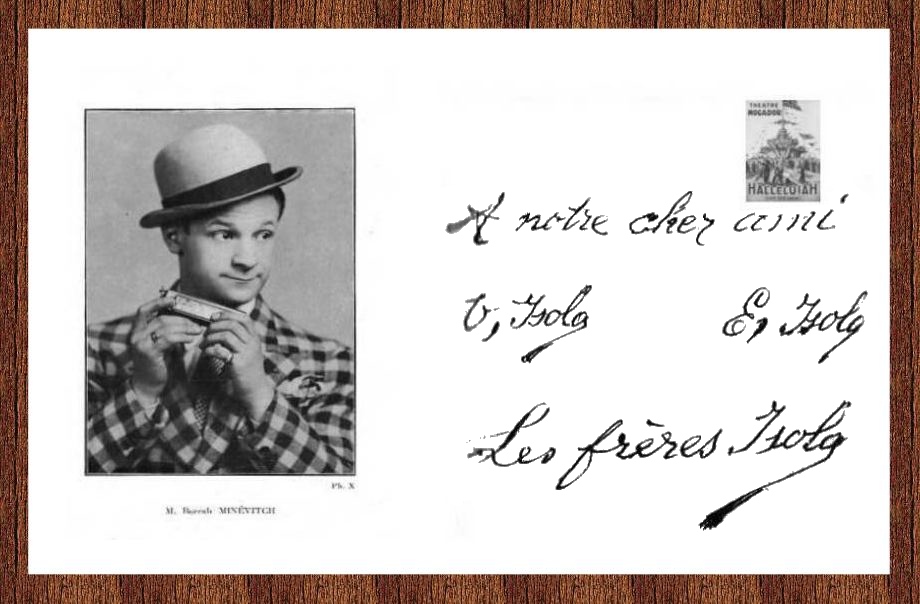 THEATRE
MOGADOR
HALLELUIAH
A notre cher ami
V, Isola
E, Isola
Les frères Isola
Ph. X
M. Borrah MINÉVITCH